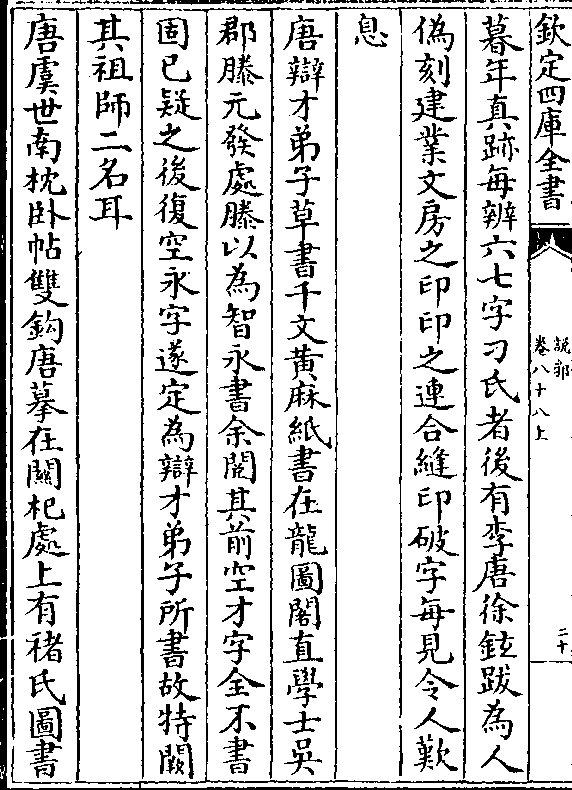 欽定四庫全書
說郛
卷八十八上
二十
暮年真跡每辦六七字刁氏者後有李唐徐鉉跋為人
偽刻建業文房之印印之連合縫印破字每見令人歎
息
唐辯才弟子草書千文黃麻紙書在龍圖閣直學士吳
郡滕元發處滕以為智永書余閱其前空才字全不書
固已疑之後復空永字遂定為辯才弟子所書故特闕
其祖師二名耳
唐虞世南枕卧帖雙鈎唐摹在關杞處上有禇氏圖書